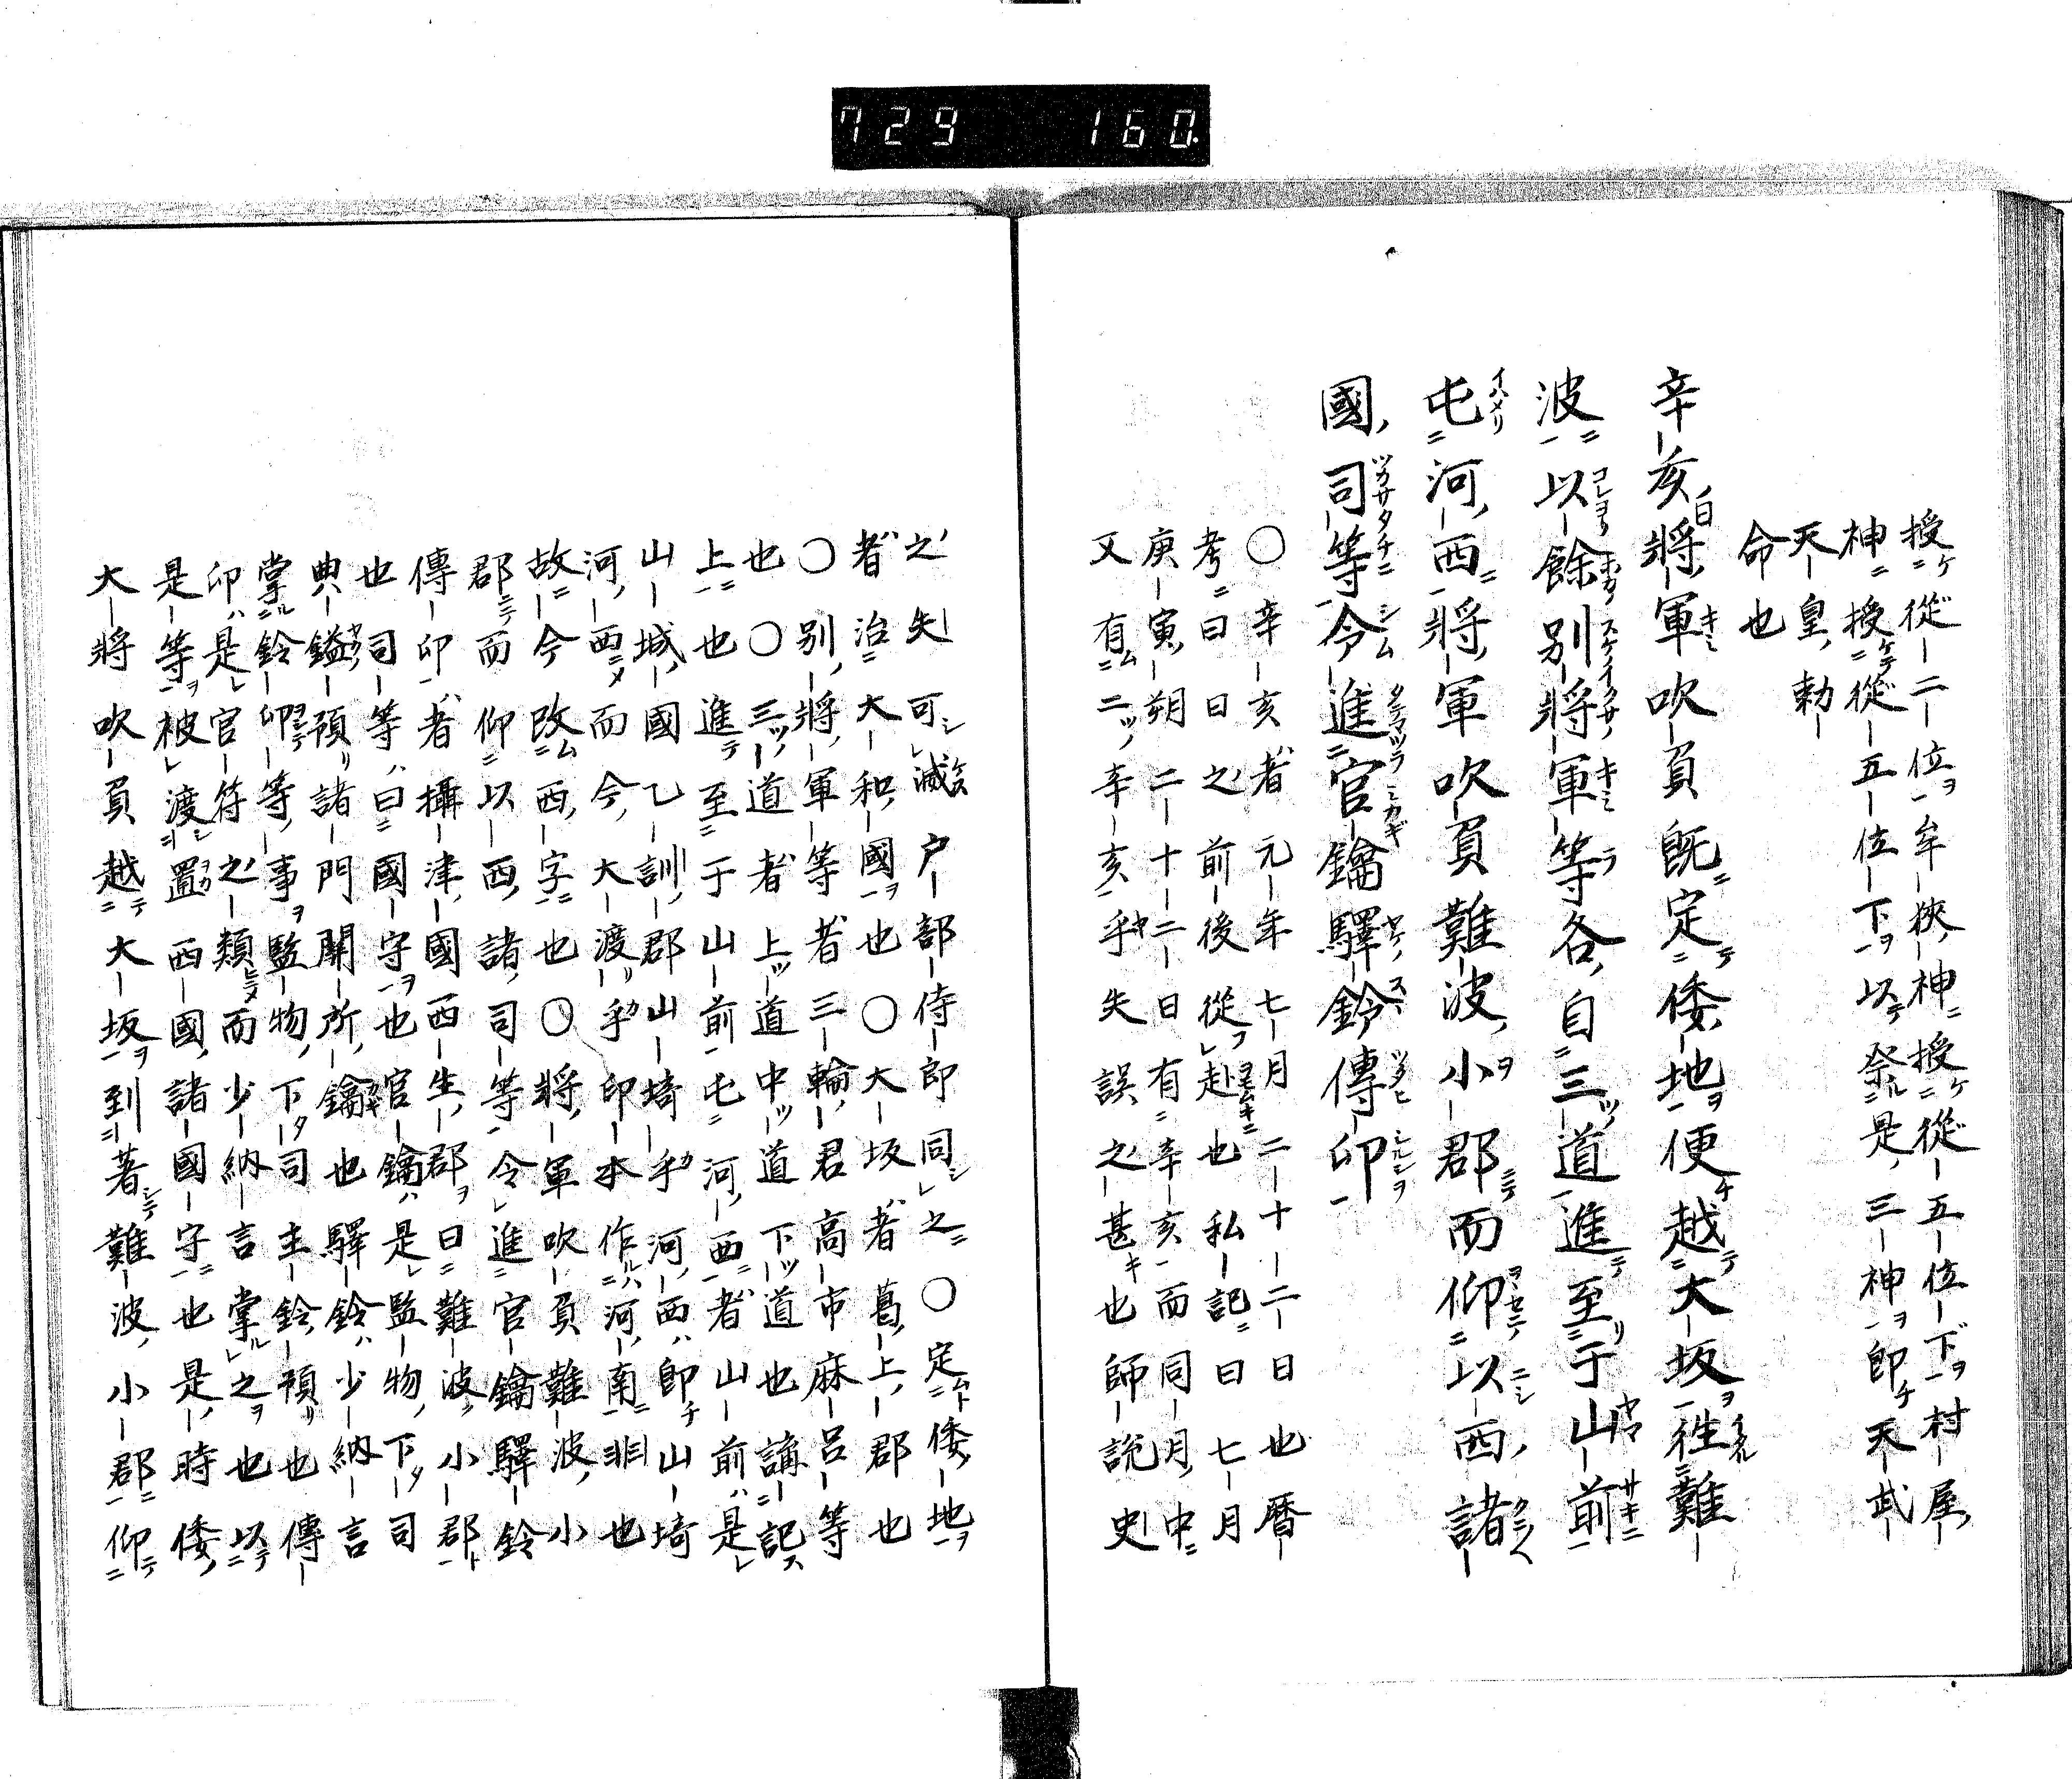 729 160
授從二位牟狹神授從五位下村屋
神授從五位下以祭是三神即天武
天皇勅
命也
辛亥將軍吹負既定倭地便越大坂往難
波以餘別將軍等各自三道進至于山前
屯河西將軍吹負難波小郡而仰以西諸
國司等令進官鑰驛鈴傳印
○辛亥者元年七月二十二日也曆
考曰日之前後從赴也私記曰七月
庚寅朔二十二日有辛亥而同月中
又有二辛亥乎失誤之甚也師說史
之失可滅戸部侍郎同之○定倭地
者治大和國也○大坂者葛上郡也
○別將軍等者三輪君高市麻呂等
也○三道者上道中道下道也講記
上也進至于山前屯河西者山前是
山城國乙訓郡山埼乎河西即山埼
河西而今大渡乎印本作河南非也
故今改西字也○將軍吹負難波小
郡而仰以西諸司等令進官鑰驛鈴
傳印者攝津國西生郡曰難波小郡
也司等曰國守也官鑰是監物下司
典鎰預諸門關所鑰也驛鈴少納言
掌鈴印等事監物下司主鈴預也傳
印是官符之類而少納言掌之也以
是等被渡置西國諸國守也是時倭
大將吹負越大坂到著難波小郡仰